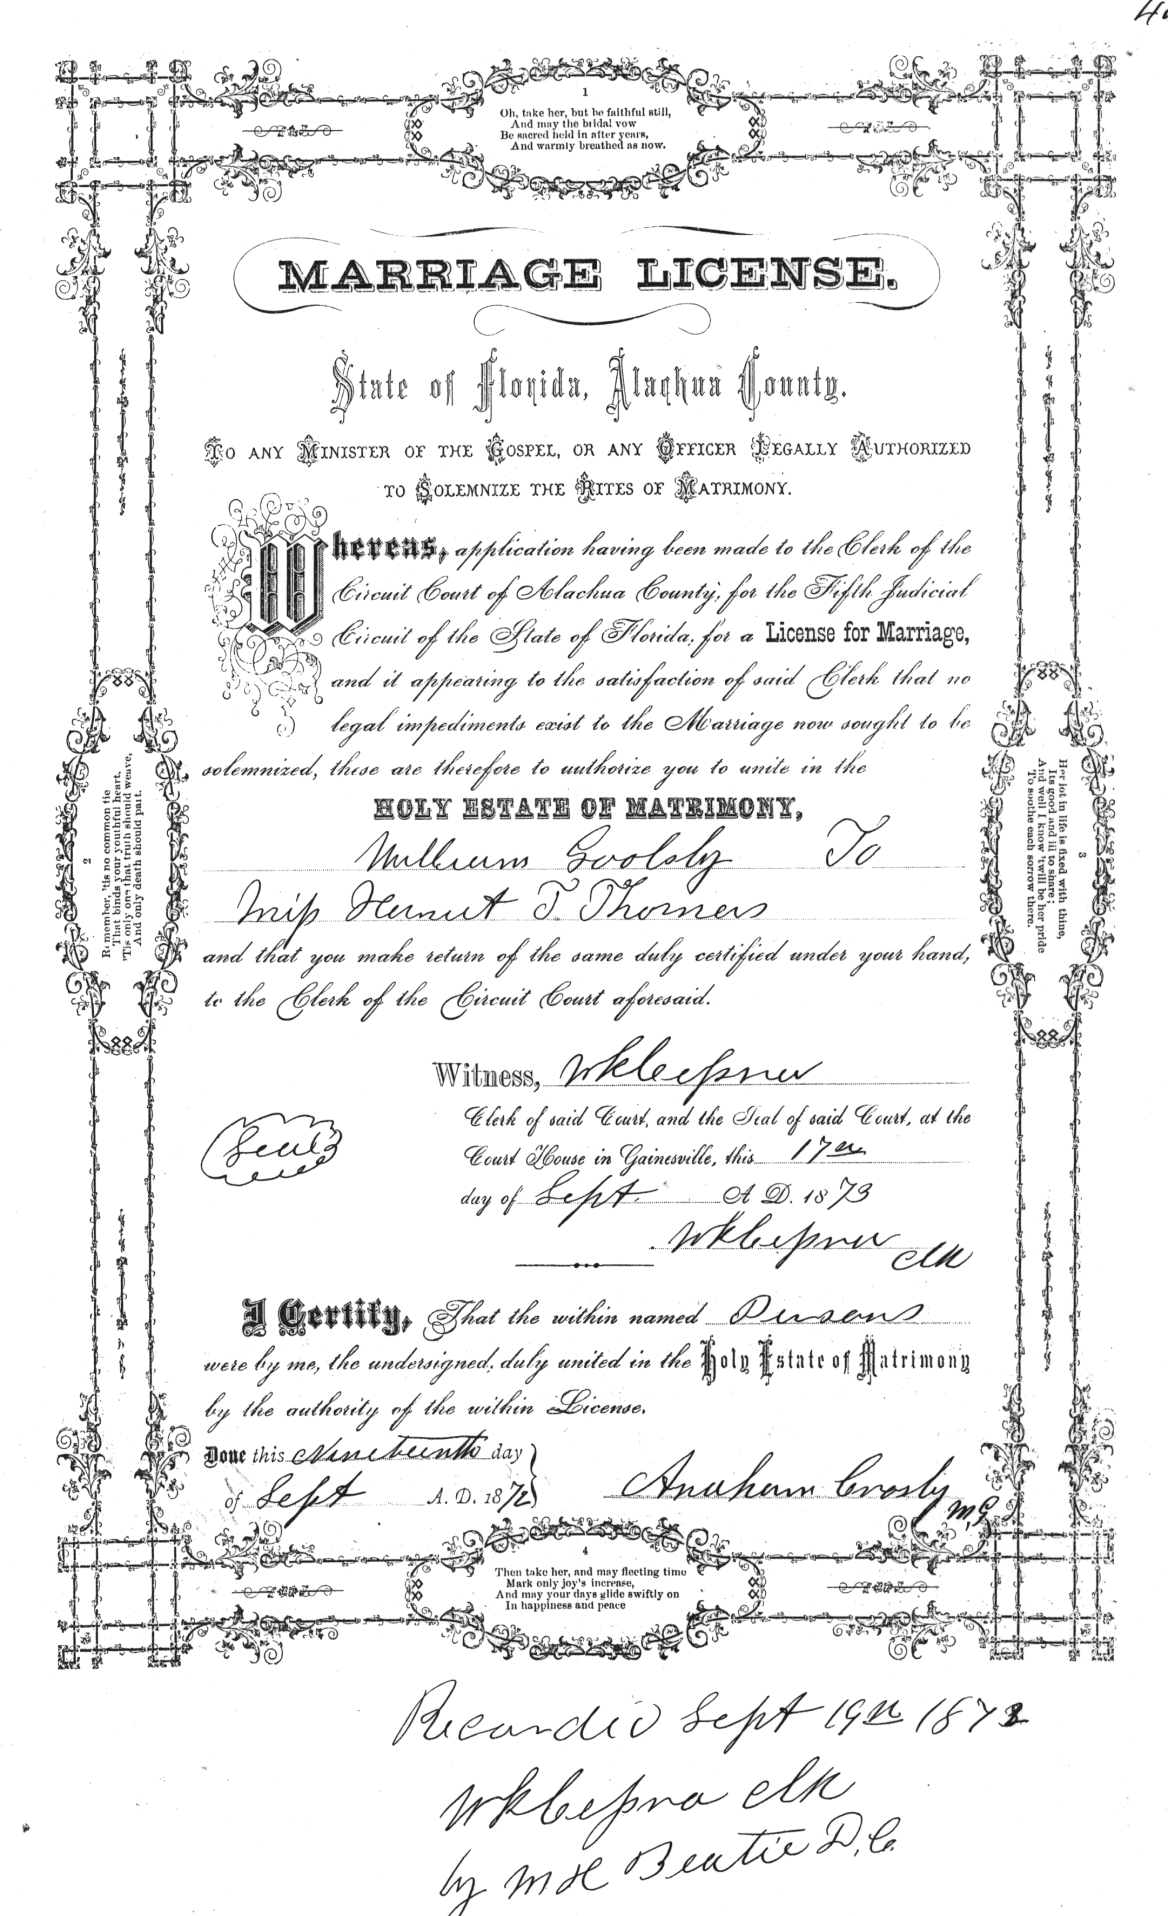 1
Oh, take her, but be faithful still,
And may the bridal vow
Be sacred held in after years,
And warmly breathed as now.
MARRIAGE LICENSE.
State of Florida, Alachua County.
TO ANY MINISTER OF THE GOSPEL, OR ANY OFFICER LEGALLY AUTHORIZED
TO SOLEMNIZE THE RITES OF MATRIMONY.
Whereas, application having been made to the Clerk of the
Circuit Court of Alachua County, for the Fifth Judicial
Circuit of the State of Florida, for a License for Marriage,
and it appearing to the satisfaction of said Clerk that no
legal impediments exist to the Marriage now sought to be
solemnized, these are therefore to authorize you to unite in the
HOLY ESTATE OF MATRIMONY,
William Goolsby To
Miss T. Thomas
and that you make return of the same duly certified under your hand,
to the Clerk of the Circuit Court aforesaid.
2
Remember, 'tis no common tie
That binds your youthful heart,
'Tis only one that truth should weave,
And only death should part.
3
Her lot in life is fixed with thine,
Its good and ill to share;
And well I know 'twill be her pride
To soothe each sorrow there.
Witness, W K Cessna
Clerk of said Court, and the Seal of said Court, at the
Seal
Court House in Gainesville, this 17th
day of Sept. A D. 1873
W K Cessna
clk
I Certify, That the within named Persons
were by me, the undersigned, duly united in the Holy Estate of Matrimony
by the authority of the within License.
Done this Nineteenth day
of Sept A. D. 1872
Crosby
M, G
4
Then take her, and may fleeting time
Mark only joy's increase,
And may your days glide swiftly on
In happiness and peace
Recorded Sept 19th 187
W K Cessna clk
by M H Beatie D. C.